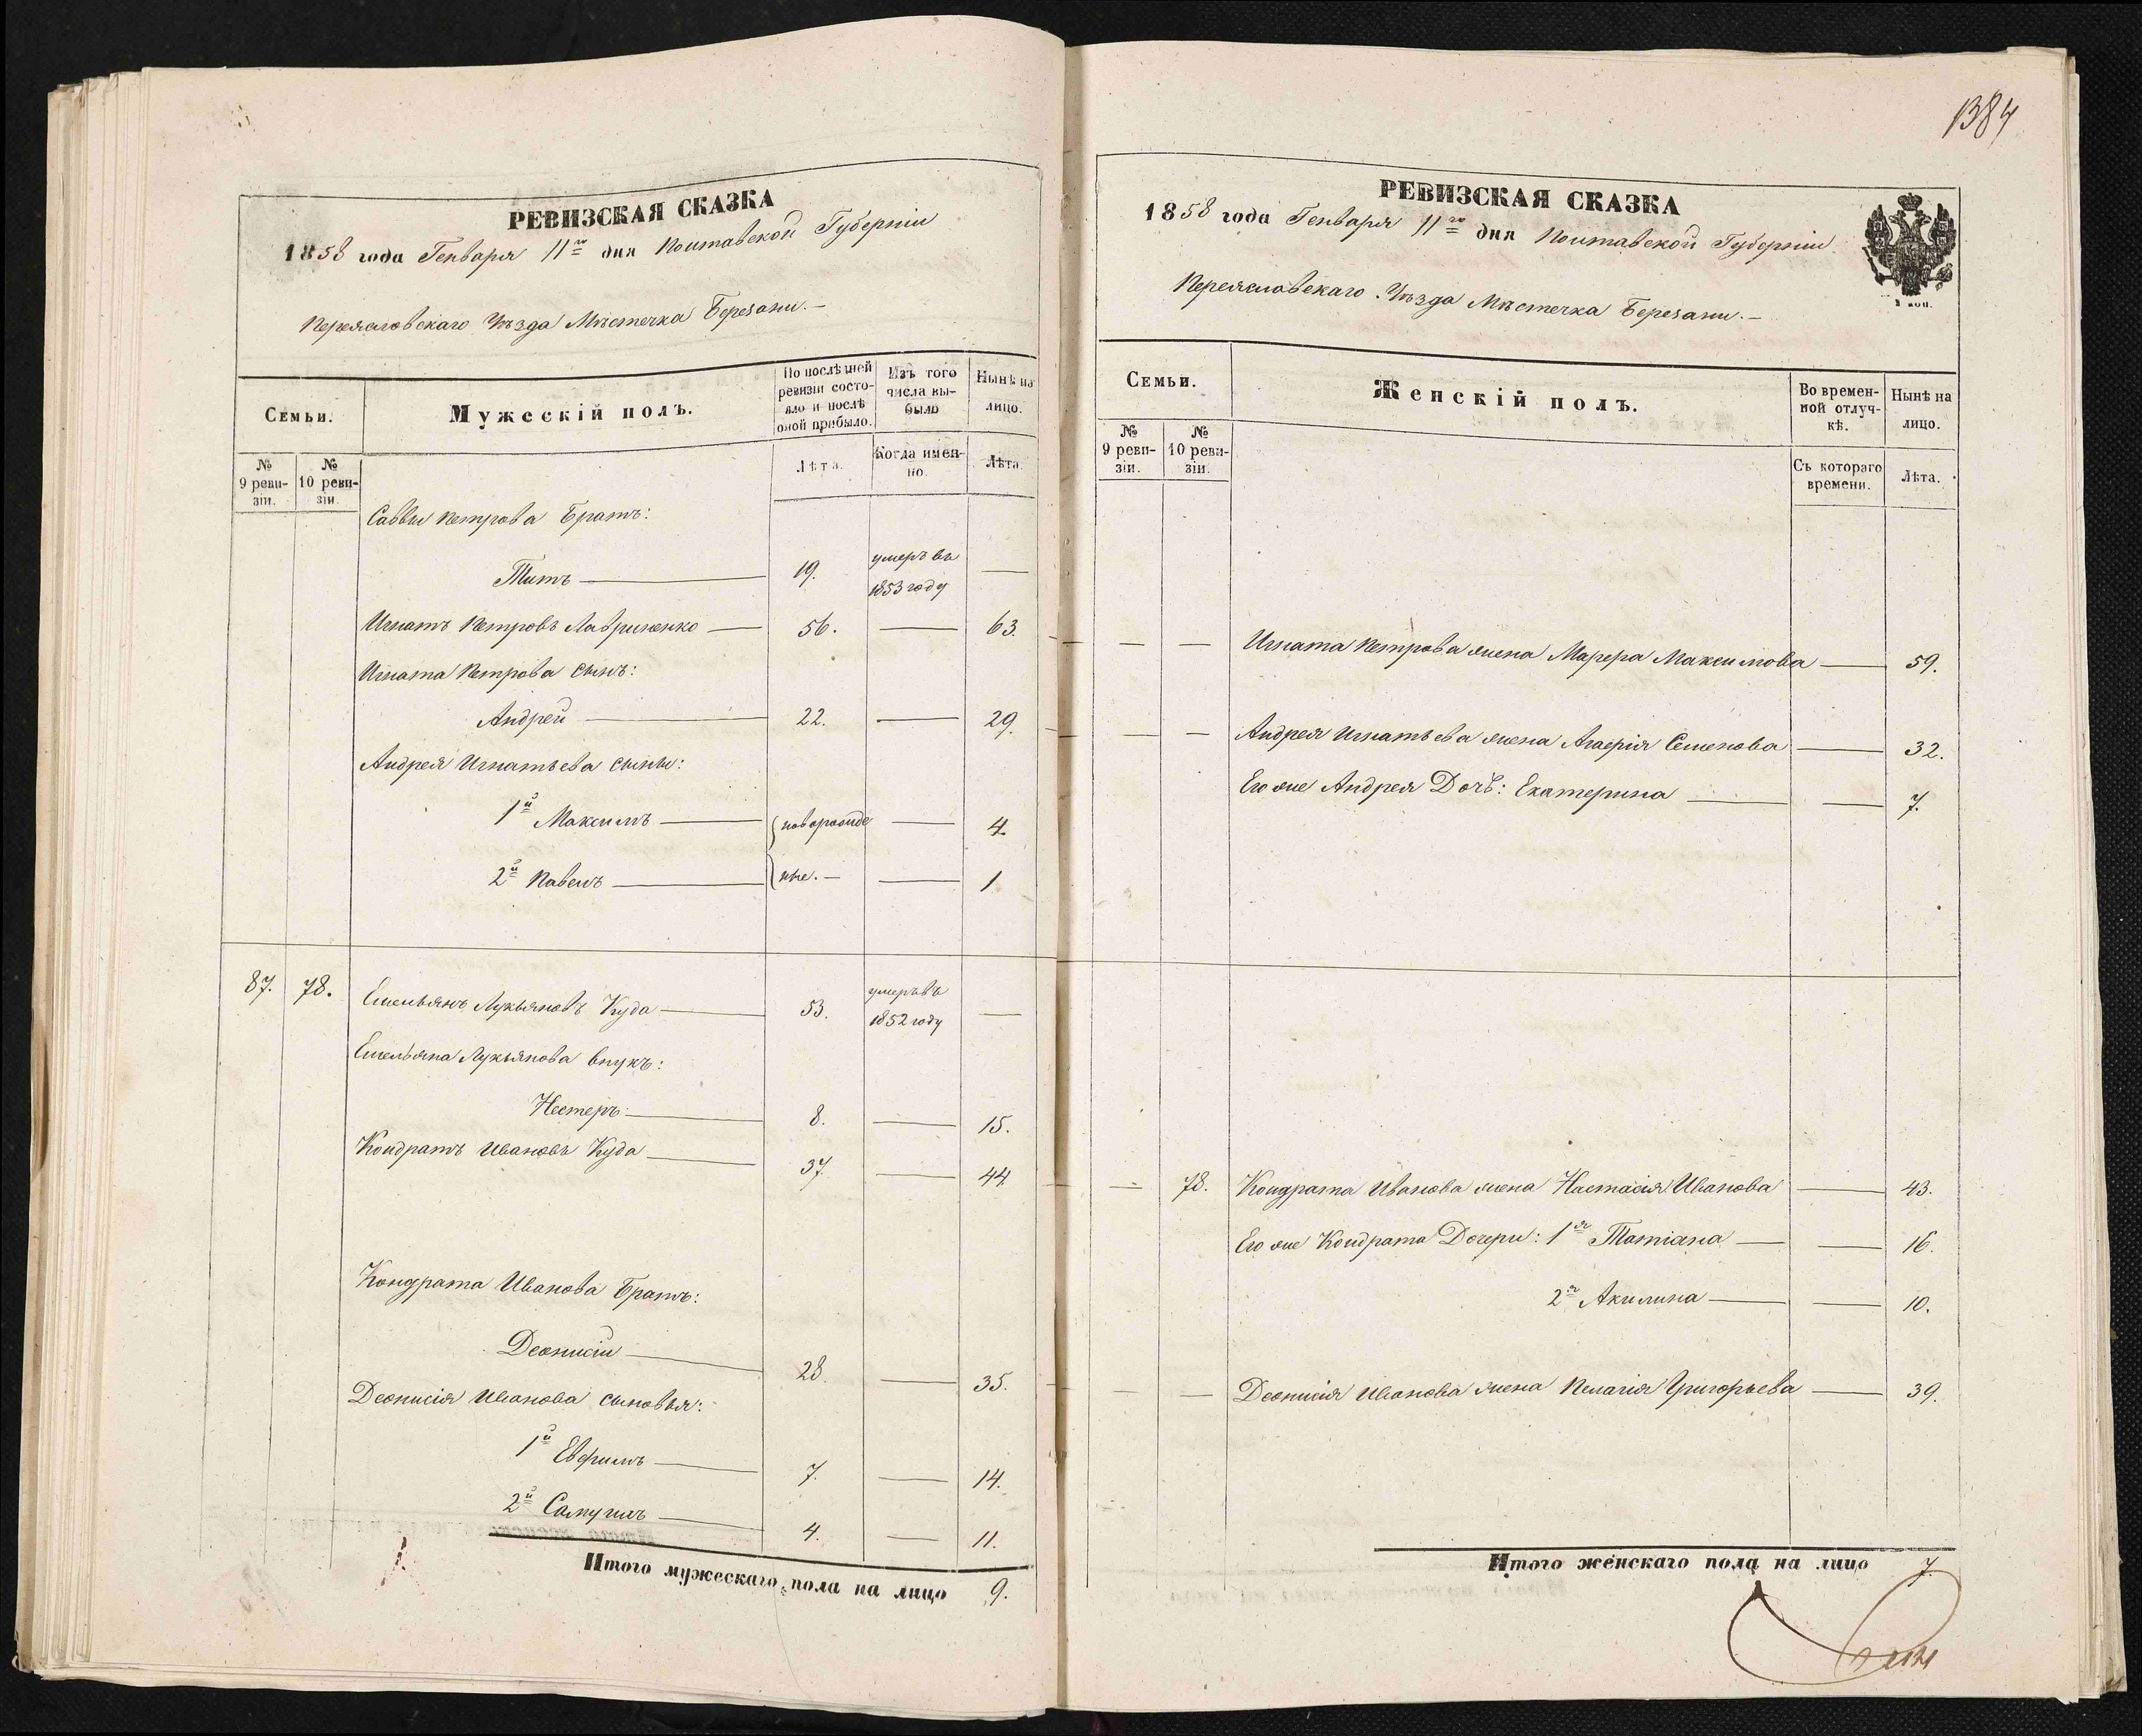 РЕВИЗСКАЯ СКАЗКА
1858 года Генваря 11го дня Полтавской Губерніи
Переясловскаго Уѣзда Мѣстечка Березани.-
Семьи.
Мужескій полъ.
По послѣдней ревизіи состояло и послѣ оной прибыло.
Изъ того числа выбыло
Нынѣ на лицо.
№ 9 ревизіи.
№ 10 ревизіи.
Лѣта.
Когда именно.
Лѣта
Саввы Петрова Братъ:
Титъ — 19. умеръ въ 1853 году —
Игнатъ Петровъ Лавриненко — 56. — 63.
Игната Петрова сынъ:
Андрей — 22. — 29.
Андрея Игнатьева сыны:
1й Максимъ — новорожде — 4.
2й Павелъ — ные. — — 1
87. 78. Емельянъ Лукьяновъ Куда — 53. умеръ въ 1852 году —
Емельяна Лукьянова внукъ:
Нестеръ — 8. — 15.
Кондратъ Ивановъ Куда — 37. — 44
Кондрата Иванова Братъ:
Деонисій — 28. — 35.
Деонисія Иванова сыновья:
1й Евфимъ — 7. — 14.
2й Самуилъ — 4. — 11.
Итого мужескаго пола на лицо 9.
1384
РЕВИЗСКАЯ СКАЗКА
1858 года Генваря 11го дня Полтавской Губерніи
Переясловскаго Уѣзда Мѣстечка Березани.-
Семьи.
Женскій полъ.
Во временной отлучкѣ.
Нынѣ на лицо.
№ 9 ревизіи.
№ 10 ревизіи.
Съ котораго времени.
Лѣта.
— — Игната Петрова жена Марфа Максимова — 59.
— — Андрея Игнатьева жена Агафія Семенова — 32.
Его же Андрея Дочь: Екатерина — — 7.
— 78. Кондрата Иванова жена Настасія Иванова — 43.
Его же Кондрата Дочери: 1я Татіана — — 16.
2я Акилина — — 10.
— — Деонисія Иванова жена Пелагія Григорьева — 39.
Итого женскаго пола на лицо 7.